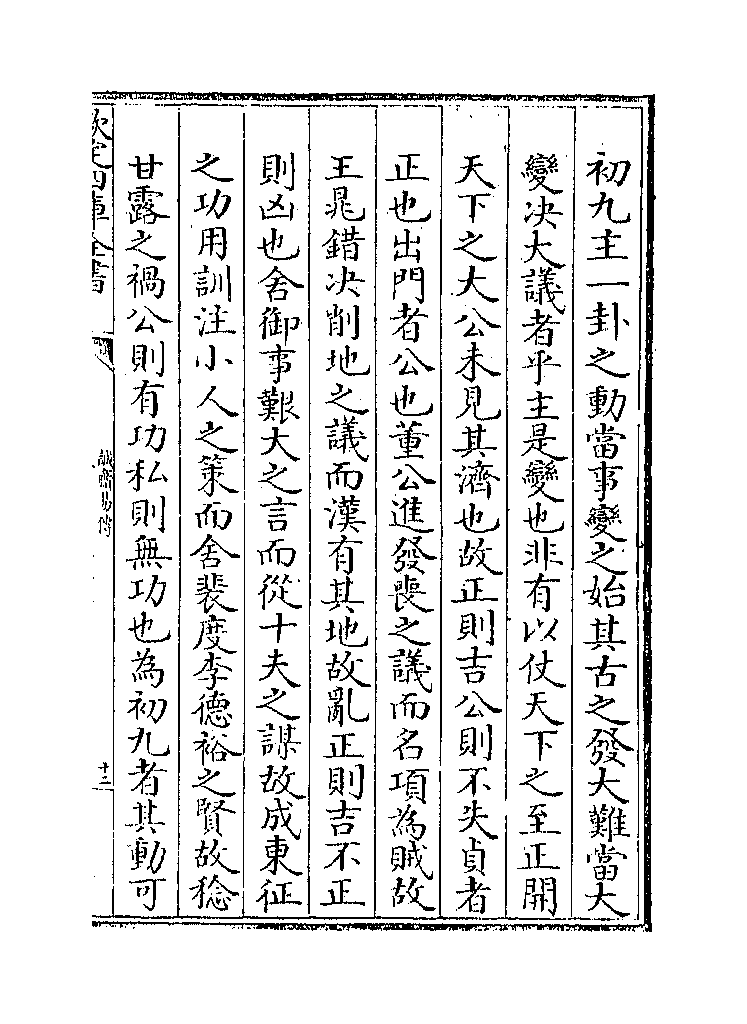 初九主一卦之動當事變之始其古之發大難當大
變决大議者乎主是變也非有以仗天下之至正開
天下之大公未見其濟也故正則吉公則不失貞者
正也出門者公也董公進發喪之議而名項為賊故
王鼂錯决削地之議而漢有其地故亂正則吉不正
則凶也舍御事艱大之言而從十夫之謀故成東征
之功用訓注小人之策而舍裴度李德裕之賢故稔
甘露之禍公則有功私則無功也為初九者其動可
欽定四庫全書
誠齋易傳
十二